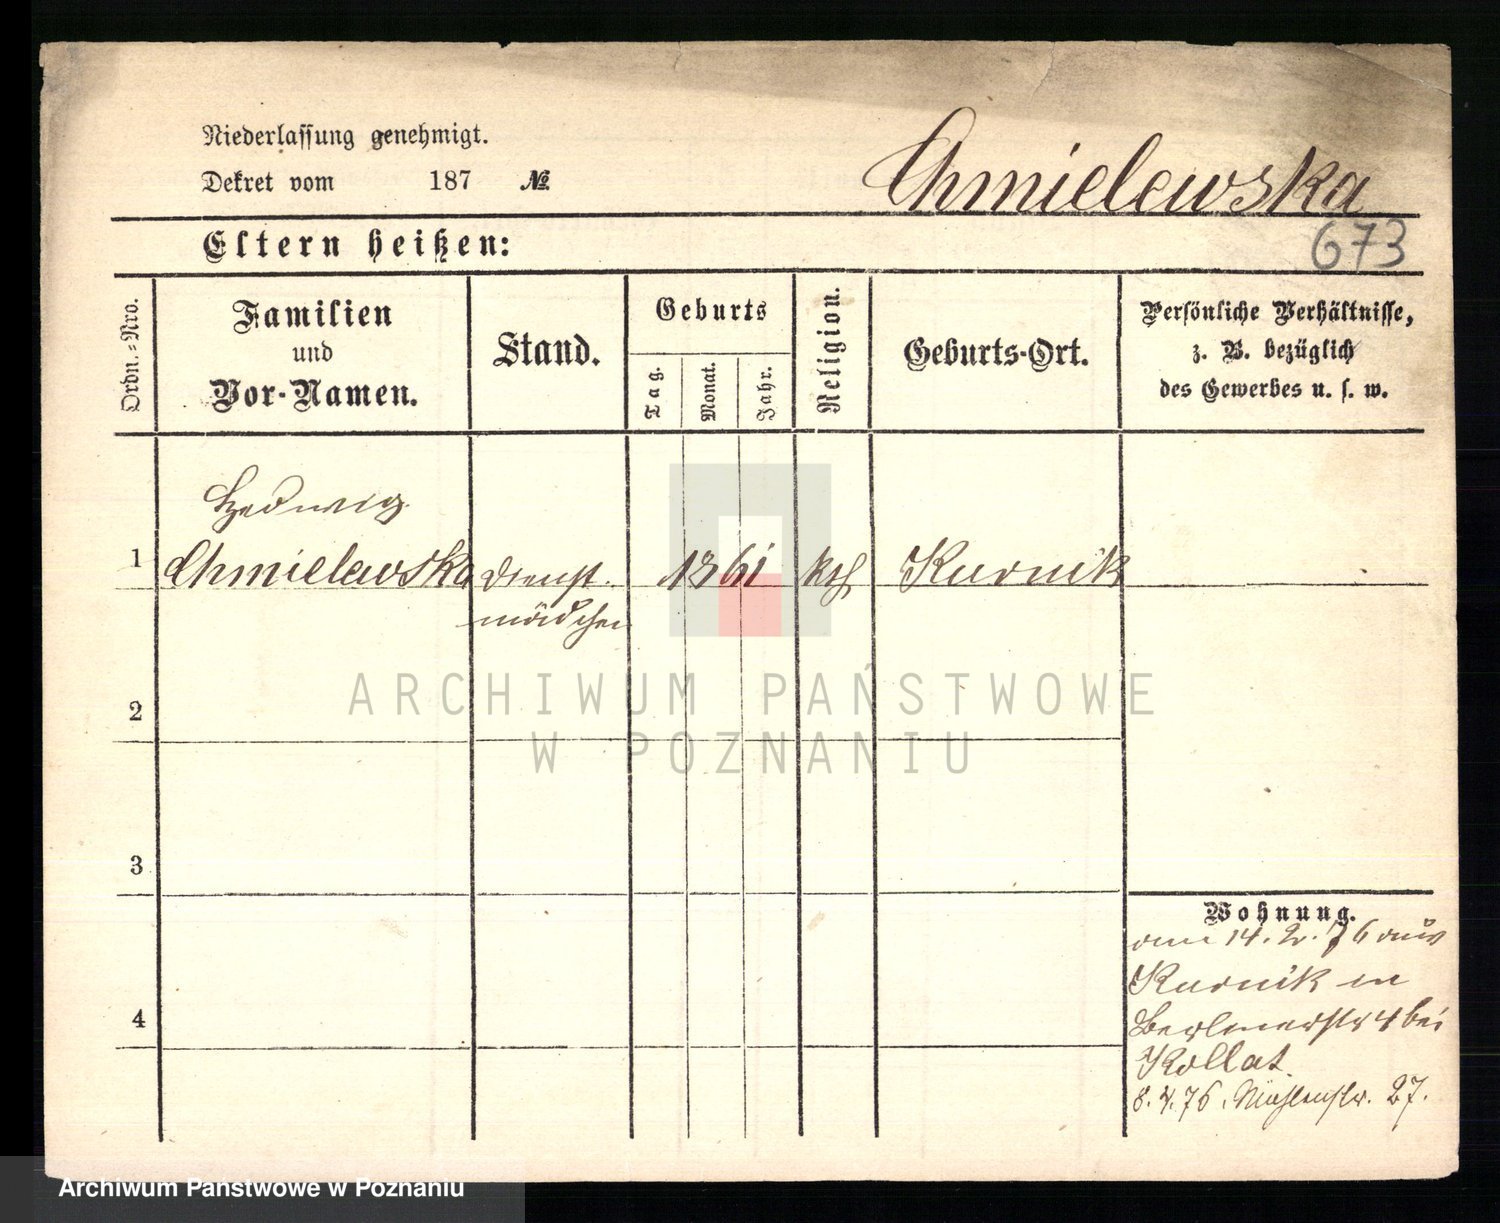 Niederlassung genehmigt.
Dekret vom 187 №
Chmielewska
Eltern heißen:
673
Ordn.-Nro.
Familien
und
Vor-Namen.
Stand.
Geburts
Tag.
Monat.
Jahr.
Religion.
Geburts-Ort.
Persönliche Verhältnisse,
z. B. bezüglich
des Gewerbes u. s. w.
Hedwig
1 Chmielewska Dienst- 1861 kth Kurnik
mädchen
ARCHIWUM PAŃSTWOWE
W POZNANIU
2
3
4
Wohnung.
am 14. 2. 76 aus
Kurnik in
Berlinerstr 4 bei
Kollat.
8. 4. 76. Mühlenstr. 27.
Archiwum Państwowe w Poznaniu